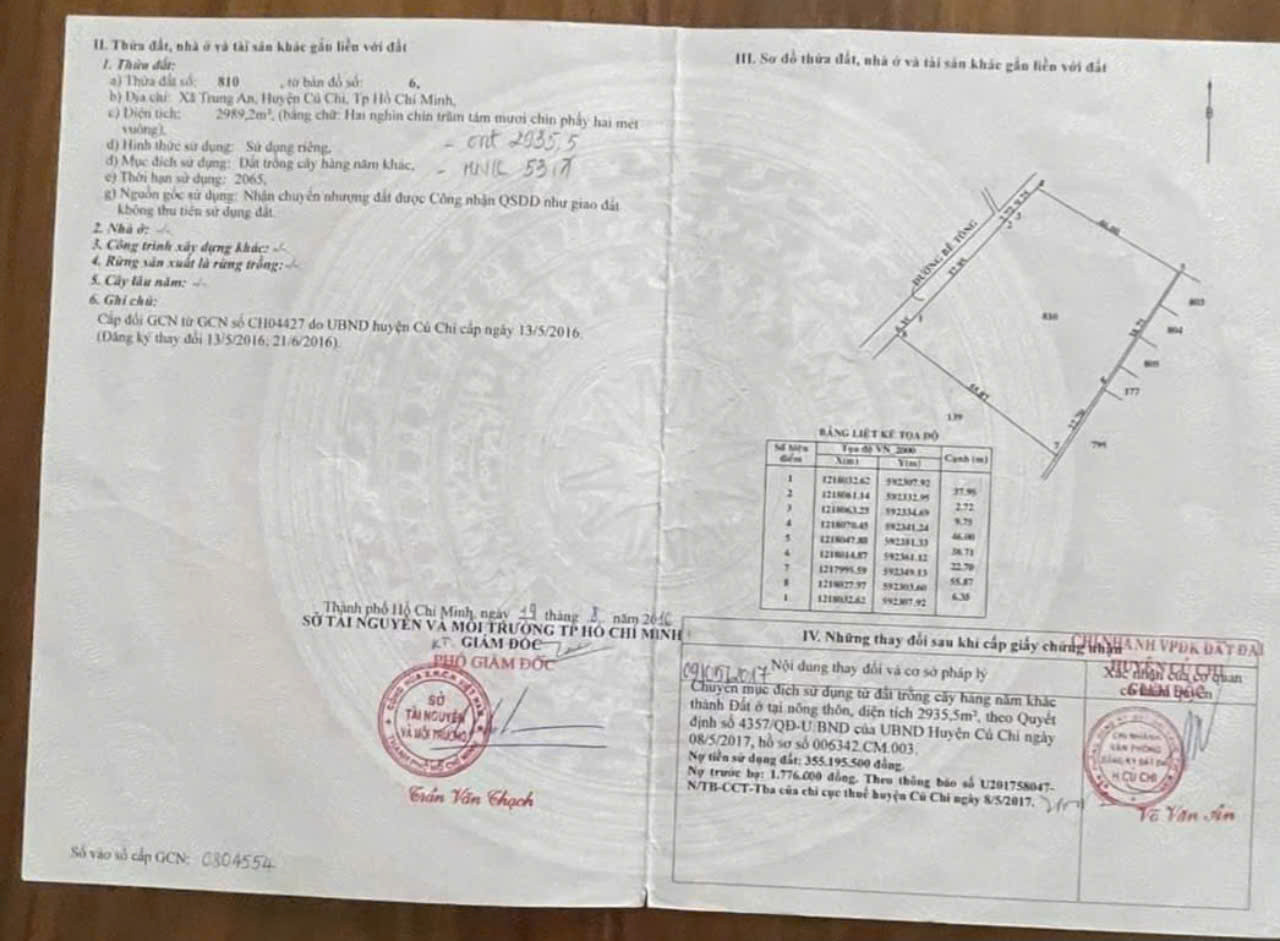 II. Thửa đất, nhà ở và tài sản khác gắn liền với đất
1. Thửa đất:
a) Thửa đất số: 810 , tờ bản đồ số: 6,
b) Địa chỉ: Xã Trung An, Huyện Củ Chi, Tp Hồ Chí Minh,
c) Diện tích: 2989,2m², (bằng chữ: Hai nghìn chín trăm tám mươi chín phẩy hai mét
vuông),
d) Hình thức sử dụng: Sử dụng riêng, - ont 2935,5
đ) Mục đích sử dụng: Đất trồng cây hàng năm khác, - HNK 53,7
e) Thời hạn sử dụng: 2065,
g) Nguồn gốc sử dụng: Nhận chuyển nhượng đất được Công nhận QSDĐ như giao đất
không thu tiền sử dụng đất.
2. Nhà ở: -/-
3. Công trình xây dựng khác: -/-
4. Rừng sản xuất là rừng trồng: -/-
5. Cây lâu năm: -/-
6. Ghi chú:
Cấp đổi GCN từ GCN số CH04427 do UBND huyện Củ Chi cấp ngày 13/5/2016.
(Đăng ký thay đổi 13/5/2016; 21/6/2016).
Thành phố Hồ Chí Minh, ngày 19 tháng 8 năm 2016
SỞ TÀI NGUYÊN VÀ MÔI TRƯỜNG TP HỒ CHÍ MINH
KT. GIÁM ĐỐC
PHÓ GIÁM ĐỐC
CỘNG HÒA X.H.C.N VIỆT NAM
SỞ
TÀI NGUYÊN
VÀ MÔI TRƯỜNG
THÀNH PHỐ HỒ CHÍ MINH
Trần Văn Thạch
Số vào sổ cấp GCN: CS04554
III. Sơ đồ thửa đất, nhà ở và tài sản khác gắn liền với đất
B
ĐƯỜNG BÊ TÔNG
6.35
1
37.95
2
2.72
3
9.75
4
46.00
5
803
804
38.71
805
6
177
22.70
795
7
55.87
8
810
139
BẢNG LIỆT KÊ TỌA ĐỘ
Số hiệu điểm Tọa độ VN_2000 Cạnh (m)
X(m) Y(m)
1 1218032.62 592307.92
37.95
2 1218061.14 592332.95
2.72
3 1218063.23 592334.69
9.75
4 1218070.45 592341.24
46.00
5 1218047.88 592381.33
38.71
6 1218014.87 592361.12
22.70
7 1217995.59 592349.13
55.87
8 1218027.97 592303.60
6.35
1 1218032.62 592307.92
IV. Những thay đổi sau khi cấp giấy chứng nhận
CHI NHÁNH VPĐK ĐẤT ĐAI
HUYỆN CỦ CHI
GIÁM ĐỐC
Nội dung thay đổi và cơ sở pháp lý
Xác nhận của cơ quan
có thẩm quyền
09/05/2017
Chuyển mục đích sử dụng từ đất trồng cây hàng năm khác
thành Đất ở tại nông thôn, diện tích 2935,5m², theo Quyết
định số 4357/QĐ-UBND của UBND Huyện Củ Chi ngày
08/5/2017, hồ sơ số 006342.CM.003.
Nợ tiền sử dụng đất: 355.195.500 đồng.
Nợ trước bạ: 1.776.000 đồng. Theo thông báo số U201758047-
N/TB-CCT-Tba của chi cục thuế huyện Củ Chi ngày 8/5/2017.
CHI NHÁNH
VĂN PHÒNG
ĐĂNG KÝ ĐẤT ĐAI
H.CỦ CHI
Võ Văn Ân